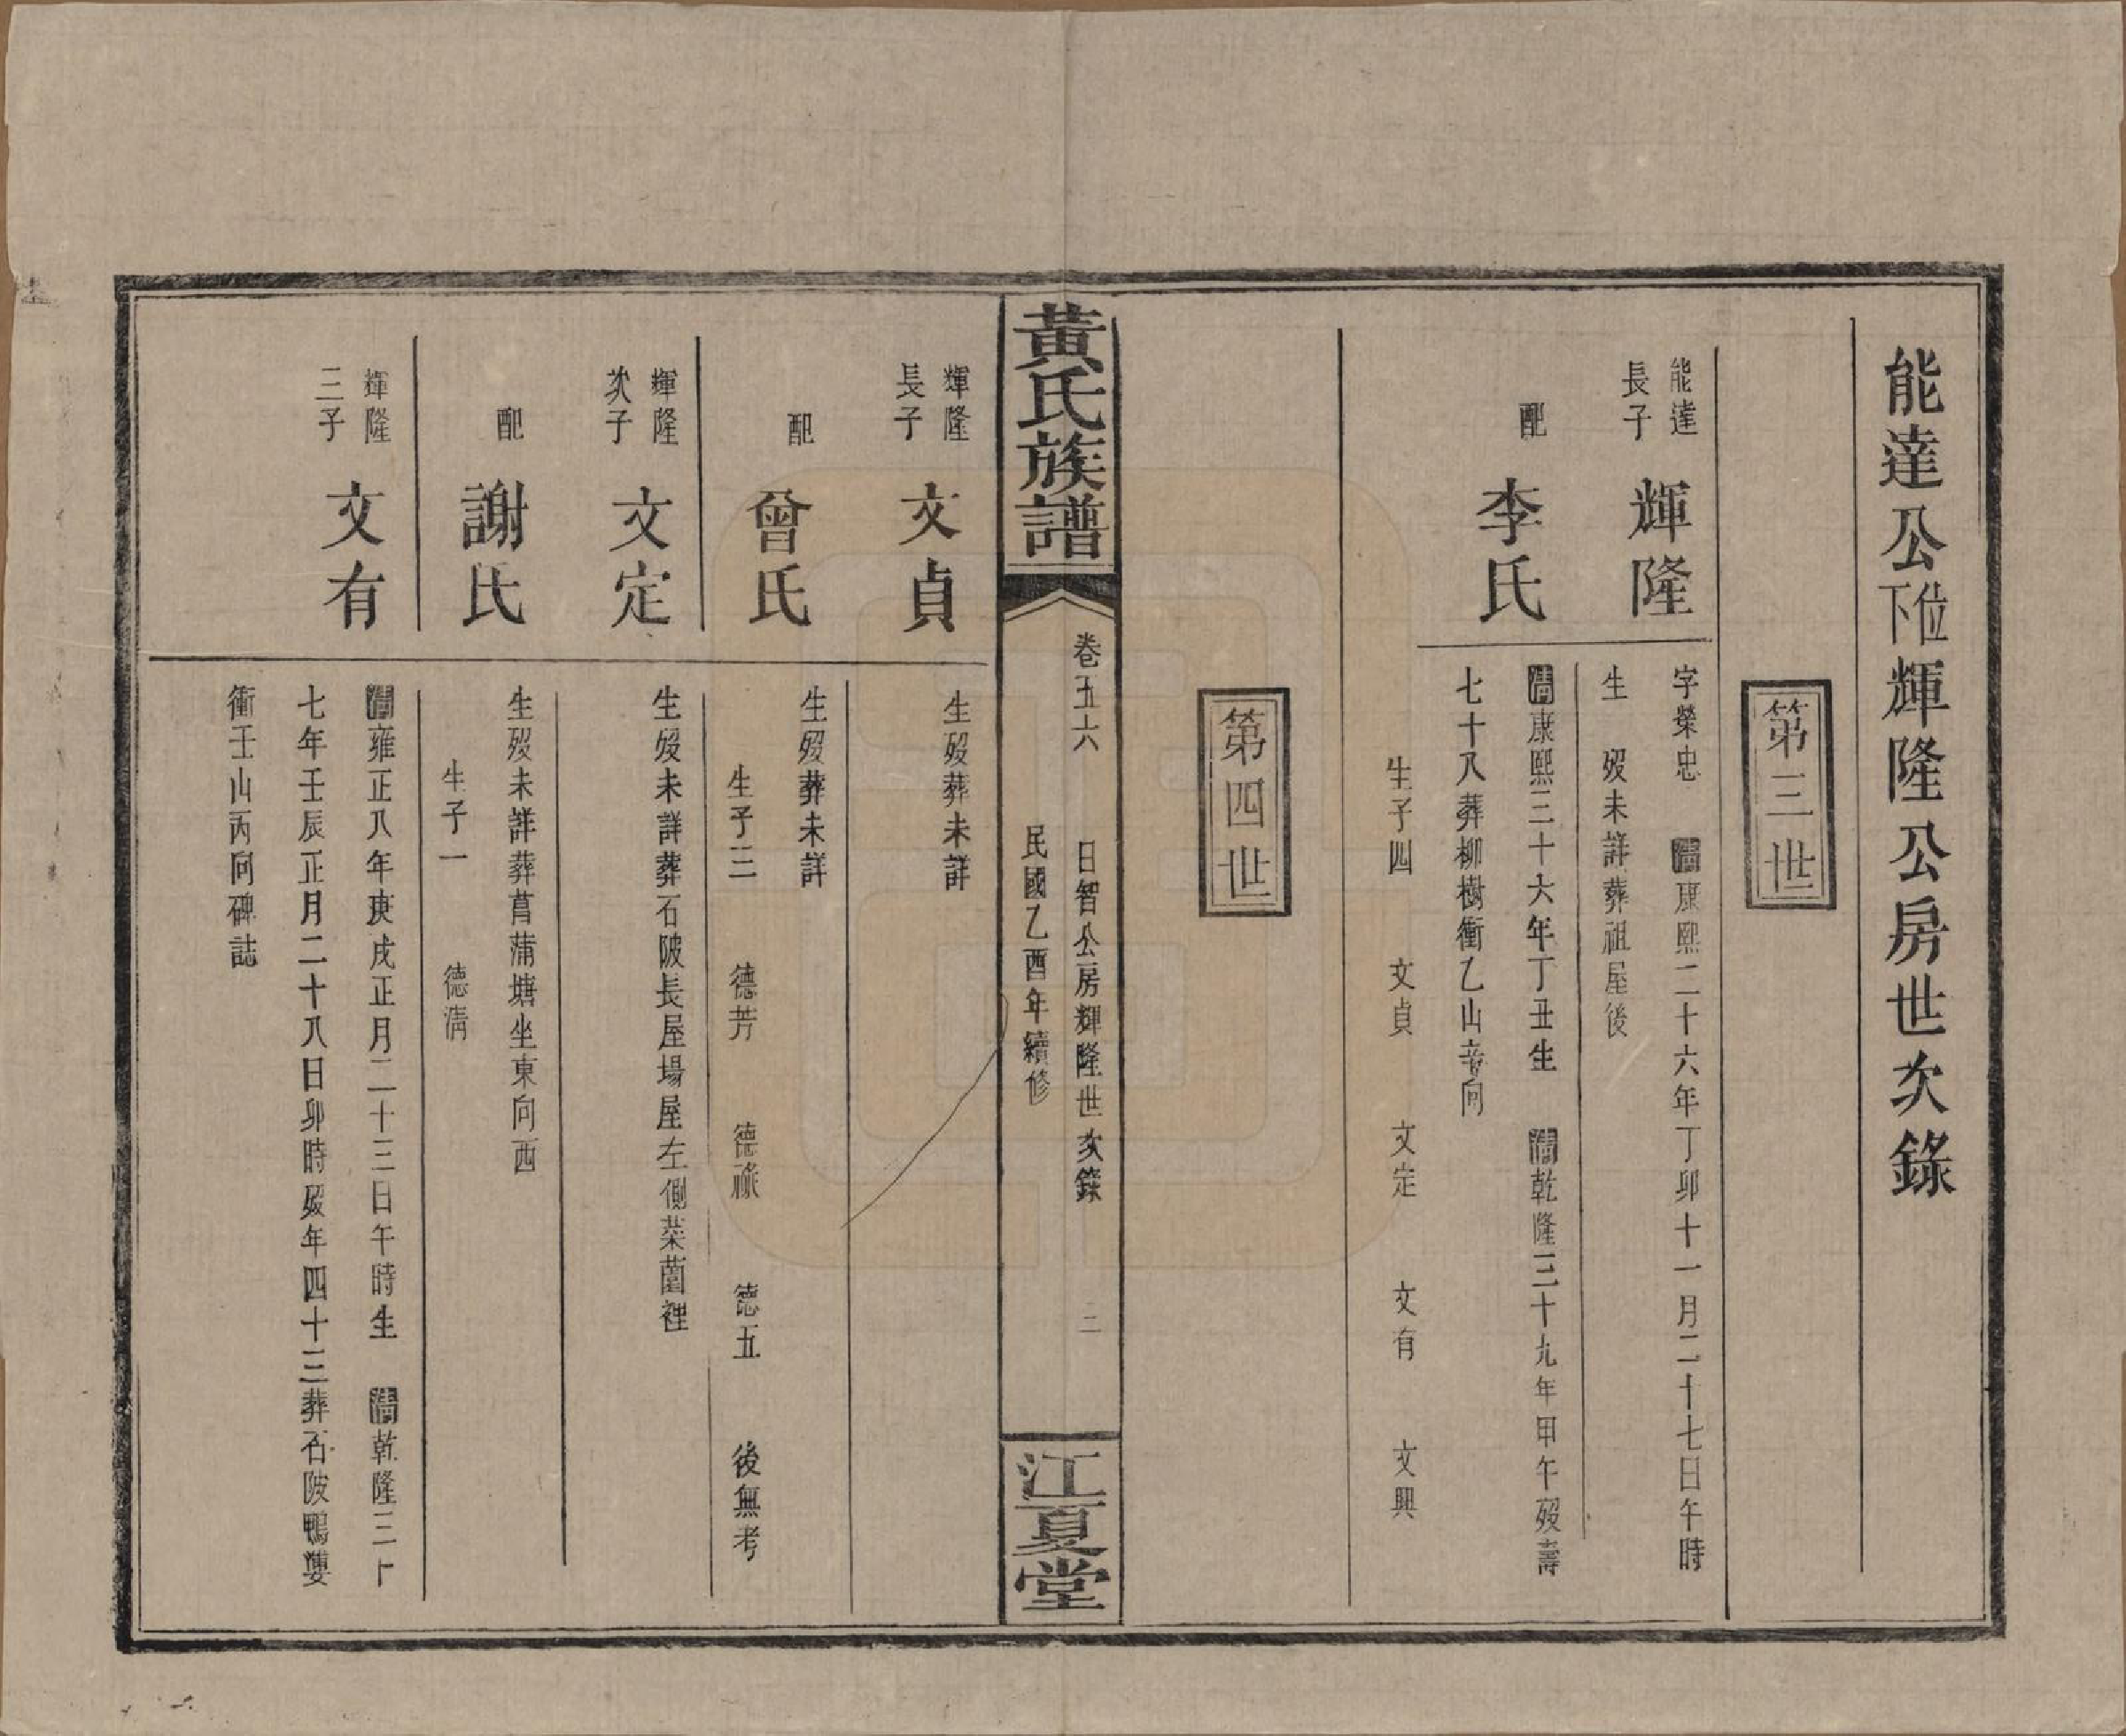 能達公位下輝隆公房世次錄
第三世
能達長子 輝隆
字榮忠 清康熙二十六年丁卯十一月二十七日午時
生 歿未詳葬祖屋後
配 李氏
清康熙三十六年丁丑生 清乾隆三十九年甲午歿壽
七十八葬柳樹衝乙山辛向
生子四 文貞 文定 文有 文興
第四世
黃氏族譜
卷五六 日智公房輝隆世次錄 二
民國乙酉年續修
江夏堂
輝隆長子 文貞
生歿葬未詳
配 曾氏
生歿葬未詳
生子三 德芳 德祿 德五 後無考
輝隆次子 文定
生歿未詳葬石陂長屋場屋左側菜園裡
配 謝氏
生歿未詳葬菖蒲塘坐東向西
生子一 德清
輝隆三子 文有
清雍正八年庚戌正月二十三日午時生 清乾隆三十
七年壬辰正月二十八日卯時歿年四十三葬石陂鴨
衝壬山丙向碑誌